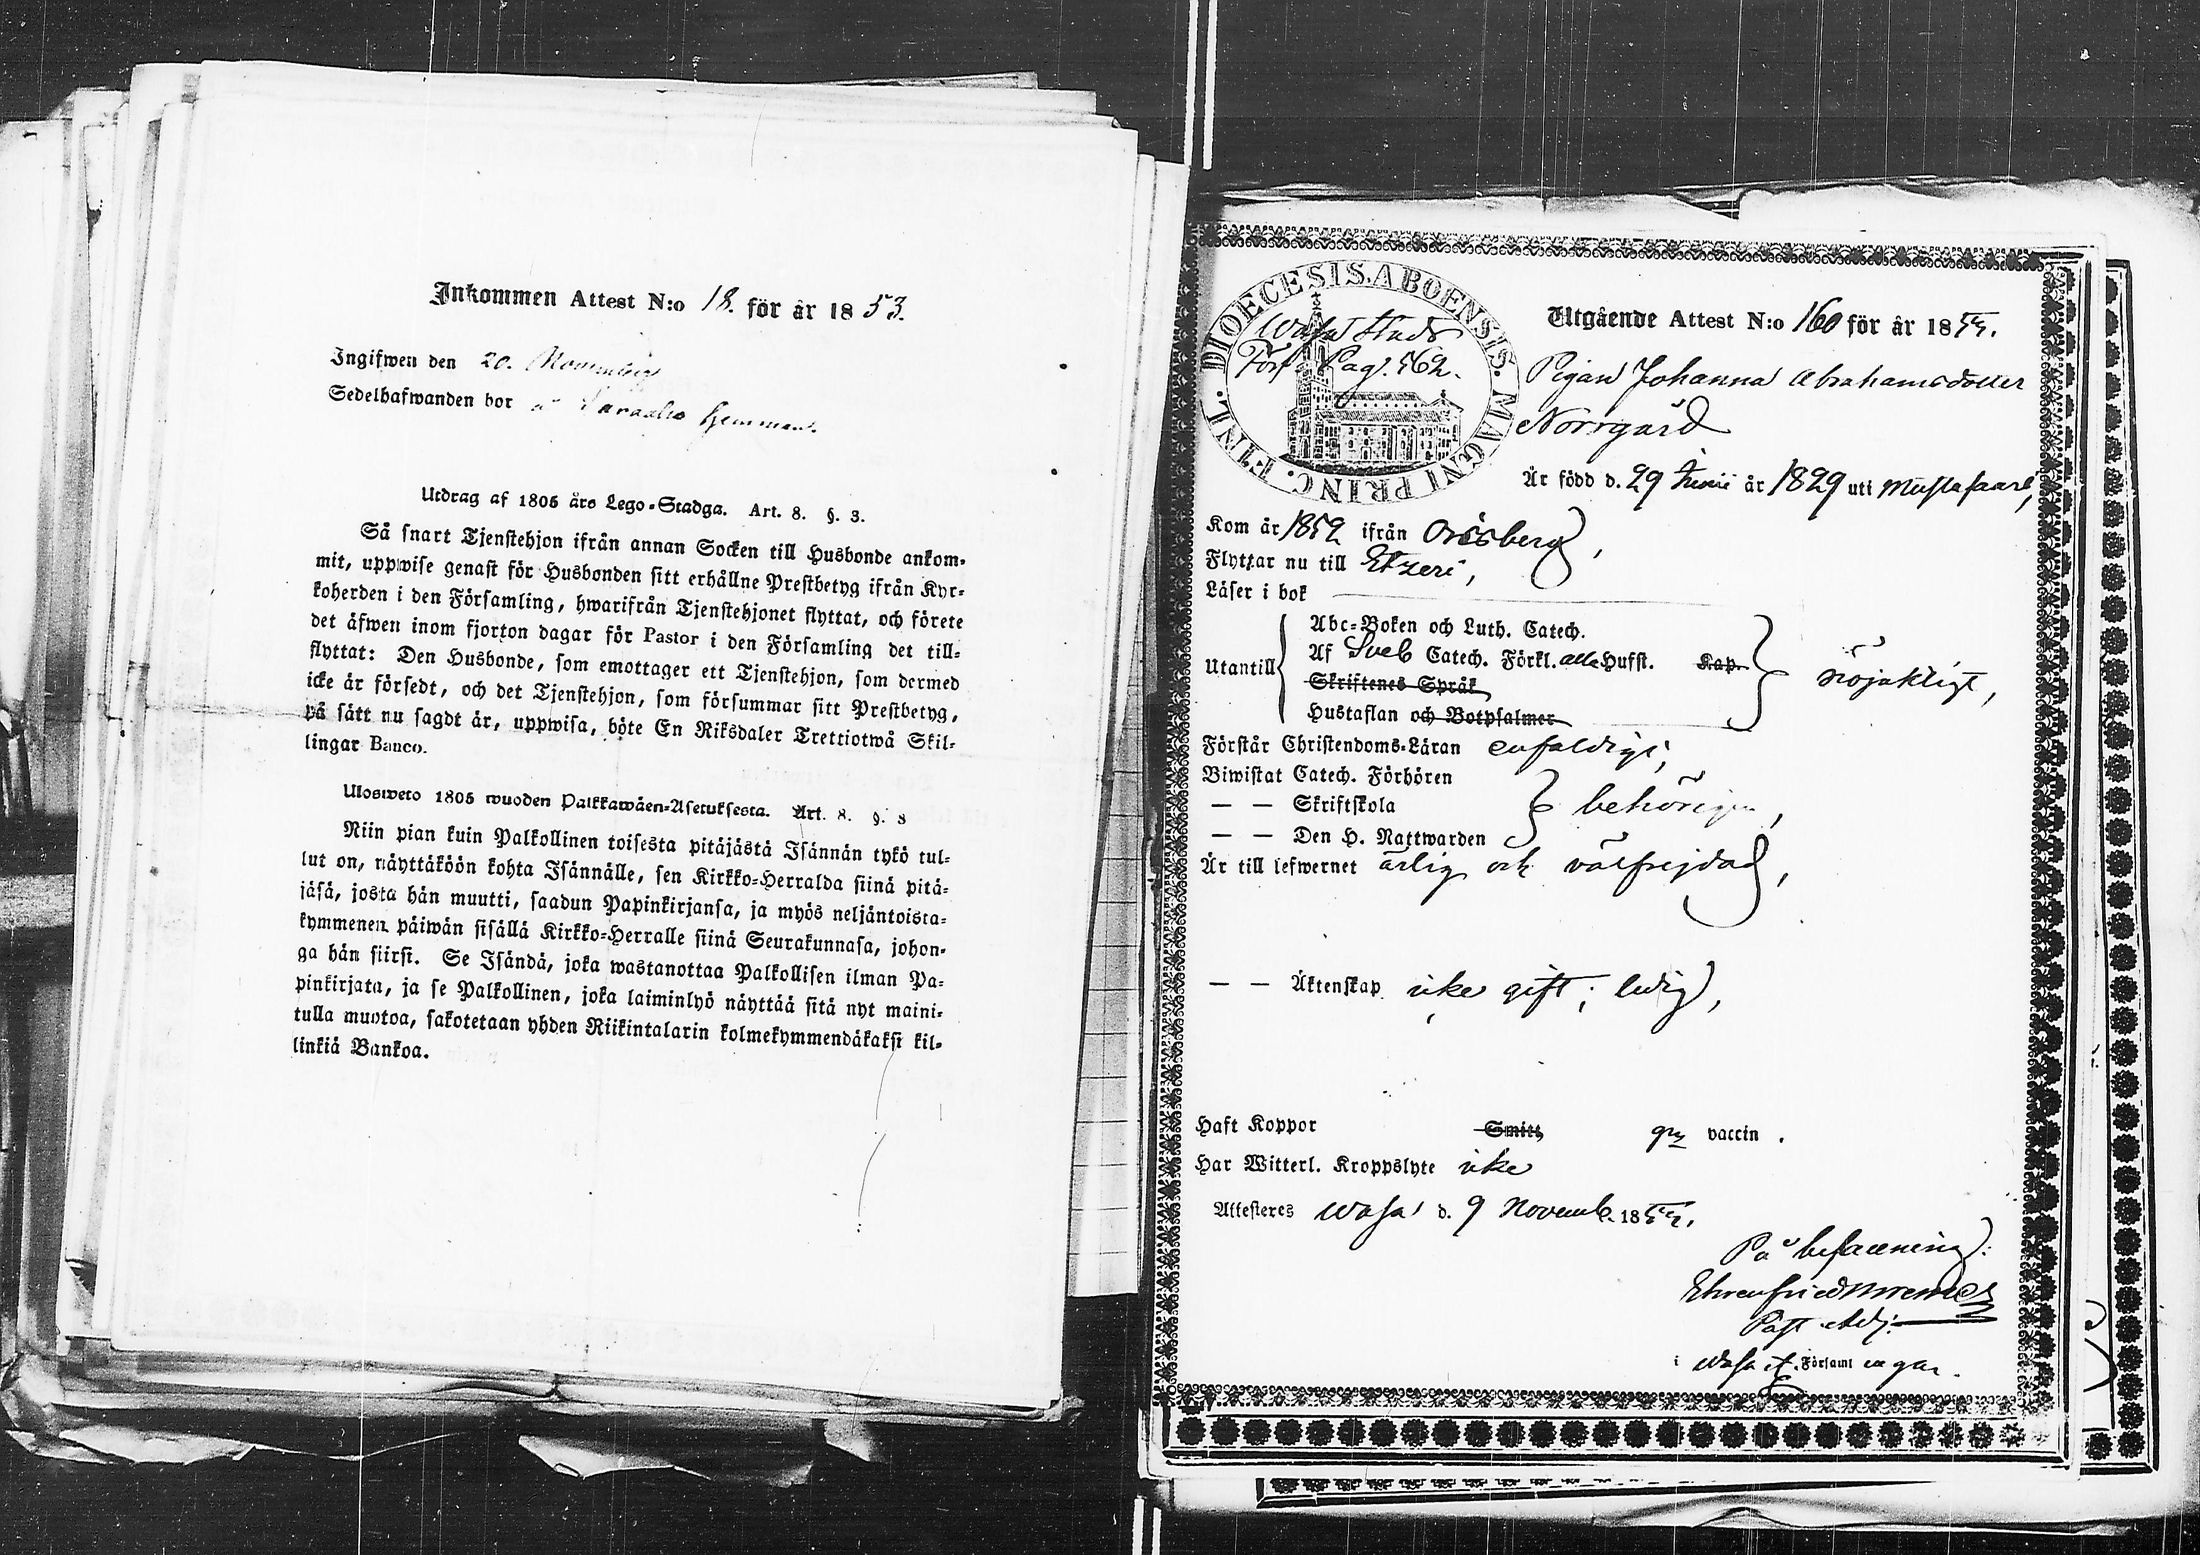 Inkommen Attest N:o 18. för år 1853.
Ingifwen den 20. Novemberg
Sedelhafwanden bor Hemman.
Utdrag af 1805 års Lego-Stadga. Art. 8. §. 3.
Så snart Tjenstehjon ifrån annan Socken till Husbonde ankom-
mit, uppwise genast för Husbonden sitt erhållne Prestbetyg ifrån Kyr-
koherden i den Församling, hwarifrån Tjenstehjonet flyttat, och förete
det äfwen inom fjorton dagar för Pastor i den Församling det till-
flyttat: Den Husbonde, som emottager ett Tjenstehjon, som dermed
icke är försedt, och det Tjenstehjon, som försummar sitt Prestbetyg,
på sätt nu sagdt är, uppwisa, böte En Riksdaler Trettiotwå Skil-
lingar Banco.
Ulosweto 1805 wuoden Palkkawäen-Asetuksesta. Art. 8. §. 3
Niin pian kuin Palkollinen toisesta pitäjästä Isännän tykö tul-
lut on, näyttäköön kohta Isännälle, sen Kirkko-Herralda siinä pitä-
jäsä, josta hän muutti, saadun Papinkirjansa, ja myös neljäntoista-
kymmenen päiwän sisällä Kirkko-Herralle siinä Seurakunnasa, johon-
ga hän siirsi. Se Isändä, joka wastanottaa Palkollisen ilman Pa-
pinkirjata, ja se Palkollinen, joka laiminlyö näyttää sitä nyt maini-
tulla muotoa, sakotetaan yhden Riikintalarin kolmekymmendäkaksi kil-
linkiä Bankoa.
DIOECESIS. ABOENSIS. MAGNI PRINC. FINL.
Wasa Stads
Förs Pag. 562.
Utgående Attest N:o 160 för år 1853.
Pigan Johanna Abrahamsdotter
Norrgård
Är född d. 29 Junii år 1829 uti Mustasaari,
Kom år 1852 ifrån Orisberg,
Flyttar nu till Etzeri,
Läser i bok
Utantill
Abc-Boken och Luth. Catech.
Af Sveb Catech. Förkl. alla Hufst. Kap.
Skriftenes Språk
Hustaflan och Botpsalmer
nöjaktigt,
Förstår Christendoms-Läran enfaldigt,
Biwistat Catech. Förhören
— — Skriftskola behörigen,
— — Den H. Nattwarden
Är till lefwernet ärlig och välfrejdad,
— — Äktenskap icke gift; ledig,
Haft Koppor Smitt gm vaccin.
Har Witterl. Kroppslyte icke
Attesteres Wasa d. 9 Novemb. 1853.
På befallning:
Ehrenfried
Past. Adj.
i Wasa st. Församl ingar.